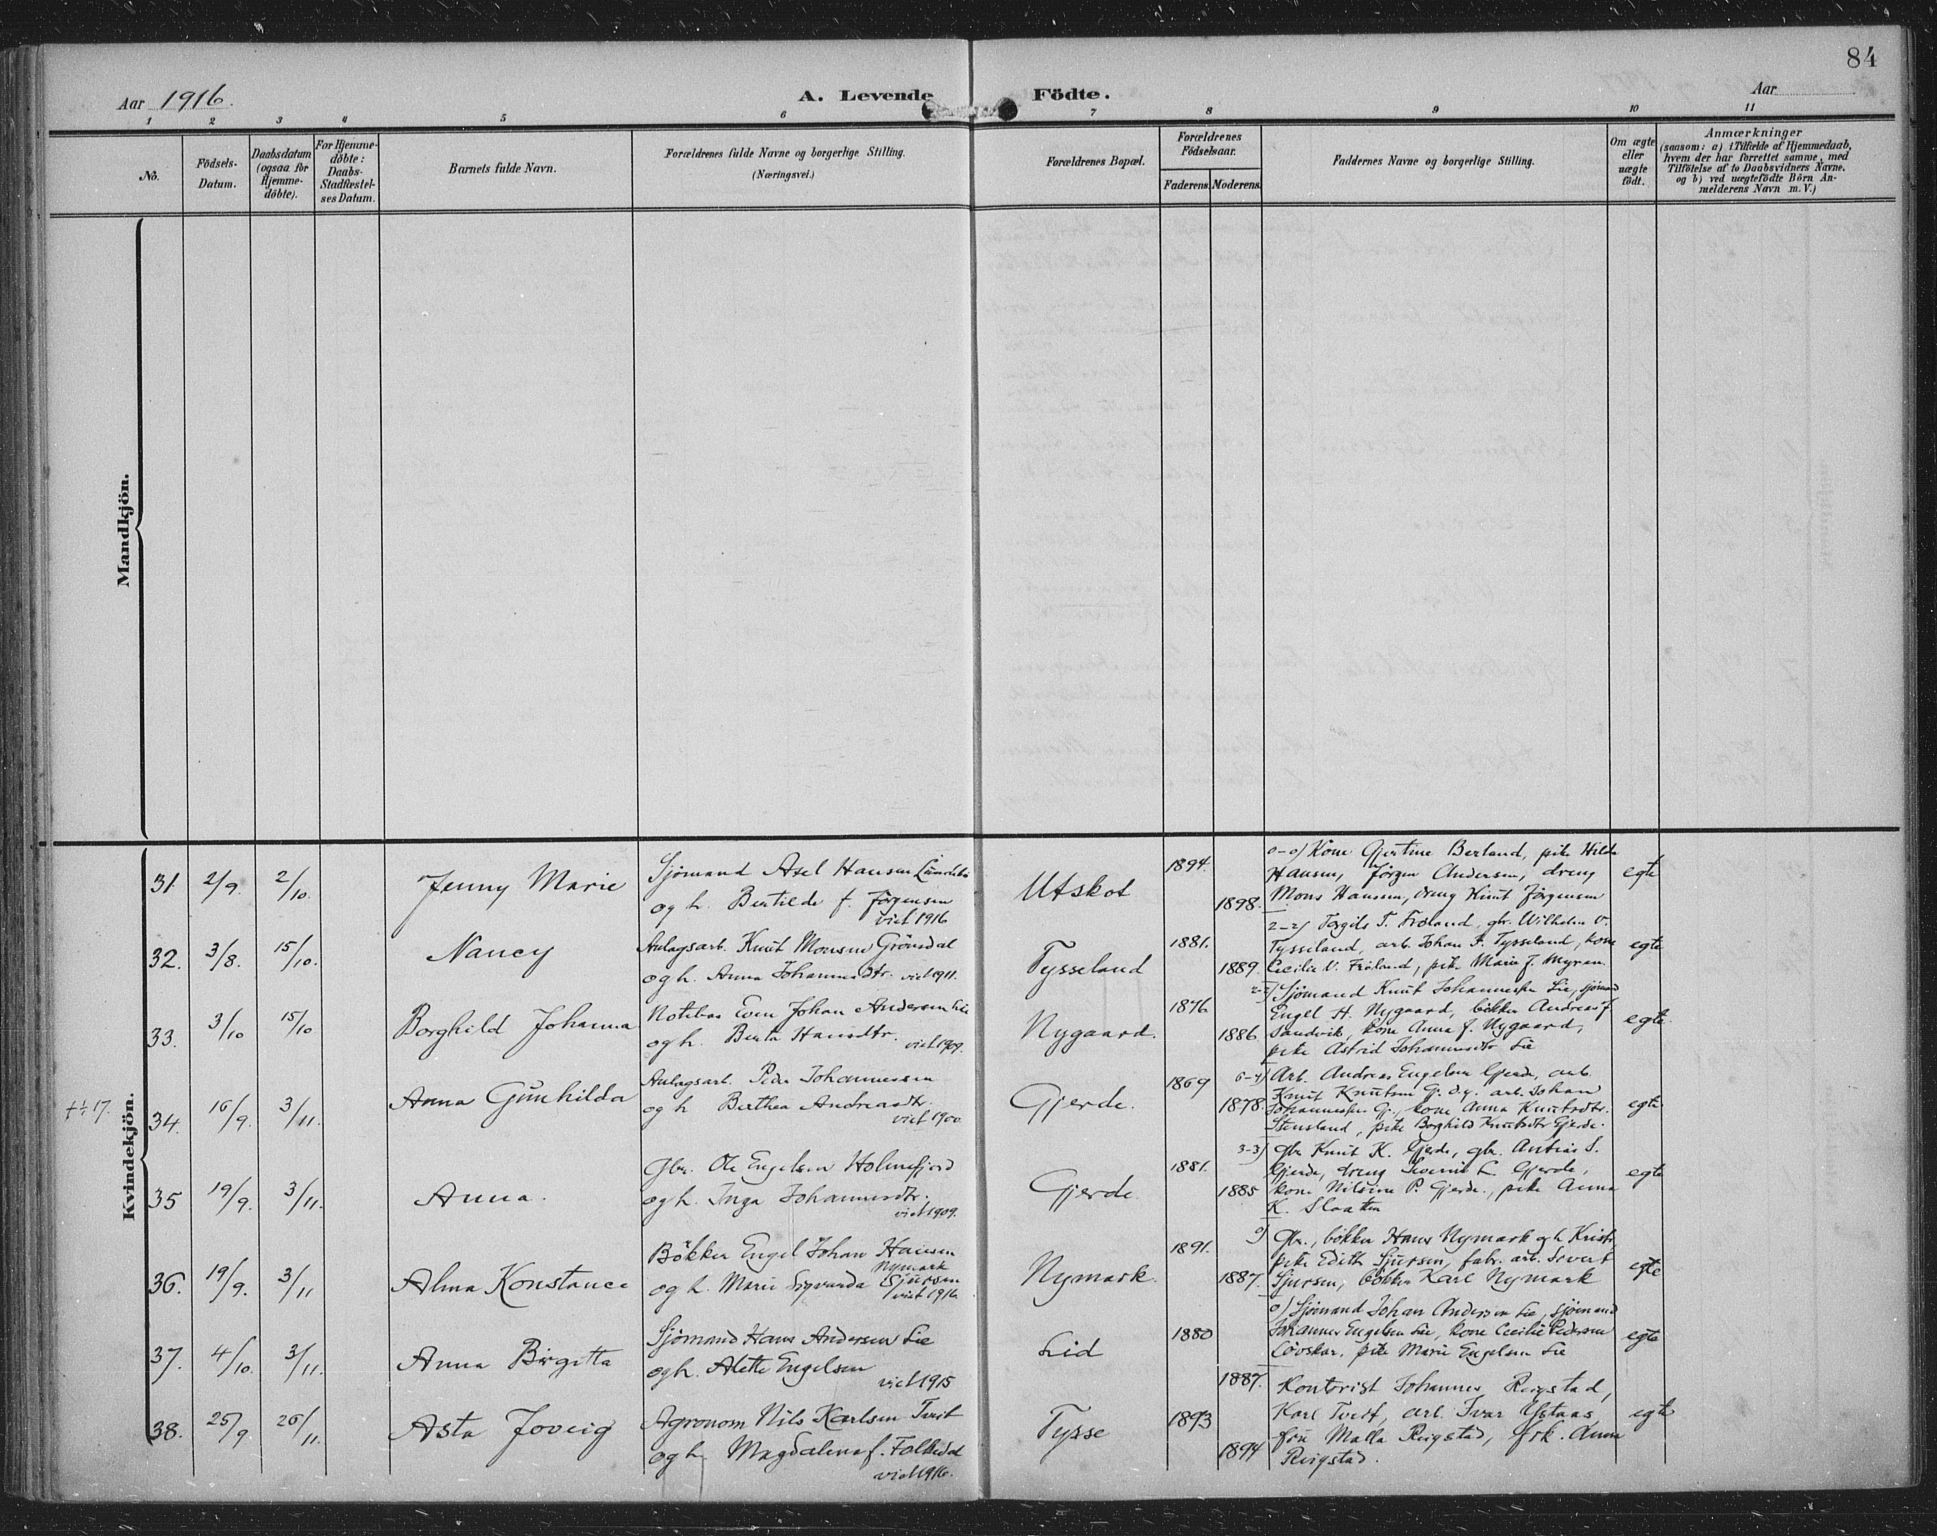 84
Aar 1916.
A. Levende Födte.
Aar
1 2 3 4 5 6 7 8 9 10 11
No.
Födsels-Datum.
Daabsdatum (ogsaa for Hjemme-döbte).
For Hjemme-döbte: Daabs-Stadfæstel-ses Datum.
Barnets fulde Navn.
Forældrenes fulde Navne og borgerlige Stilling.
(Næringsvei.)
Forældrenes Bopæl.
Forældrenes Födselsaar.
Faderens. Moderens.
Faddernes Navne og borgerlige Stilling.
Om ægte eller uægte födt.
Anmærkninger
(saasom: a) i Tilfælde af Hjemmedaab,
hvem der har forrettet samme, med
Tilföielse af to Daabsvidners Navne.
og b) ved uægtefödte Börn An-
melderens Navn m. V.)
Mandkjön.
Kvindekjön.
31. 2/9. 2/10. Jenny Marie
Sjømand Axel Hansen
og h. Bertilde f. Jörgensen
viet 1916
Utskot
1894.
1898.
0-0) Kone Gjertine Berland, pike Hilda
Hansen, Jörgen Andersen, dreng
Mons Hanssen, dreng Knut Jörgensen
egte
32. 3/8. 15/10. Nancy
Anlagsarb. Knut Monsen Grönsdal
og h. Anna Johannesdtr. viet 1911.
Tysseland
1881.
1889.
2-2) Torgils T. Fröland, gbr. Wilhelm V.
Tysseland, arb. Johan F. Tysseland, kone
Cecilie V. Fröland, pike Marie J. Myran
egte
33. 3/10 15/10 Borghild Johanna
Notebas Even Johan Andersen Lie
og h. Berta Hansdtr. viet 1909.
Nygaard.
1876
1886.
2-2) Sjömand Knut Johannessen Lie, sjömand
Engel H. Nygaard, bökker Andreas J.
Sandvik, kone Anna J. Nygaard,
pike Astrid Johannesdtr Lie
egte.
34. 16/9. 3/11. Anna Gunhilda
Anlagsarb. Peder Johannessen
og h Berthea Andreasdtr.
viet 1900
Gjerde.
1869
1878.
Arb. Andreas Engelsen Gjerde, arb.
Knut Knutsen G. d.y. arb. Johan
Johannessen Gj., kone Anna Knutsdtr.
Stensland, pike Borghild Knutsdtr Gjerde.
egte
35 19/9. 3/11. Anna.
Gbr. Ole Engelsen Holmefjord
og h. Inga Johannesdtr.
viet 1909.
Gjerde
1881.
1885
3-3) Gbr Knut K. Gjerde, gbr. Antias S.
Gjerde, dreng Severin L. Gjerde,
kone Nilsine P. Gjerde, pike Anna
K. Slaatten
egte
36. 19/9. 3/11 Alma Konstance
Bökker Engel Johan Hansen
Nymark
og h. Marie Sigvarda Sjursen
viet 1916
Nymark.
1891.
1887.
Gbr., bökker Hans Nymark og h Kristi
pike Edith Sjursen, fabr. arb. Severt
Sjursen, bökker Karl Nymark
egte
37. 4/10. 3/11. Anna Birgitta
Sjömand Hans Andersen Lie
og h. Alette Engelsen
viet 1915
Lid
1880
1887.
0) Sjömand Johan Andersen Lie, sjömand
Johannes Engelsen Lie, kone Cecilie Pedersen
Lövskar, pike Marie Engelsen Lie
egte
38. 25/9. 26/11. Asta Joveig
Agronom Nils Karlsen Tveit
og h. Magdalena f. Folkedal
viet 1916.
Tysse
1893
1894
Kontorist Johannes Reigstad,
Karl Tveit, arb. Ivar Ystaas
fru Malla Reigstad, frk. Anna
Reigstad.
egte